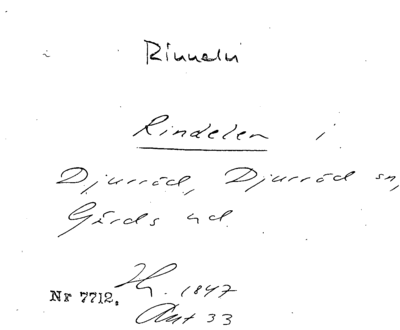 Rinneln
Rindelen i
Djurröd, Djurröd sn,
Gärds hd.
Nr 7712. Hg. 1847
Ant 33